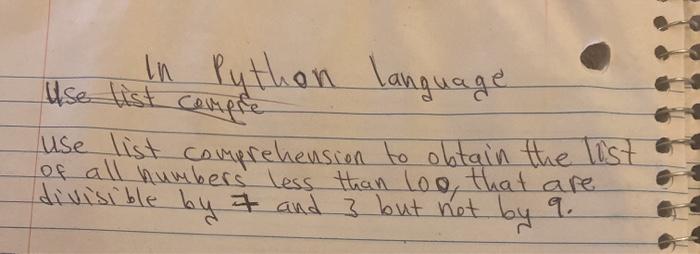 In Python language
Use list compre
use list comprehension to obtain the list
of all numbers less than 100, that are
divisible by 7 and 3 but not by 9.